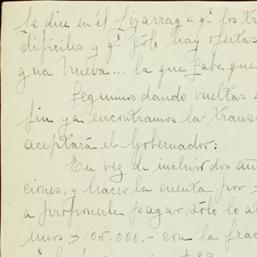 Se dice en el Lizarraga qe. los tr
difíciles y qe. sólo hay ofertas
gua Nueva... la que sabe que
Seguimos dando vueltas
fin ya encontramos la trans
aceptará el Gobernador:
En vez de incluir dos añ
ciones, y hacer la cuenta por
a proponerle pagar sólo lo a
unos $105.000.- con la frac